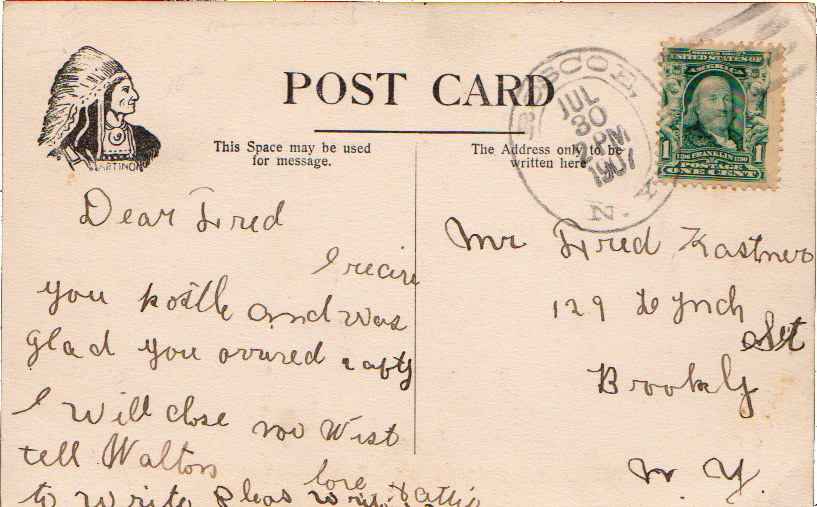 POST CARD
This Space may be used
for message.
The Address only to be
written here
ROSCOE,
JUL
30
2 PM
1907
N.
UNITED STATES OF
AMERICA
FRANKLIN
POSTAGE
1 1
ONE CENT
Dear Fred
I recive
you postle and was
glad you arrived safty
I will close now
tell Walton
to write pleas write
love Hattie
Mr Fred Kastner
129 Lynch
St
Brookly
N. Y.